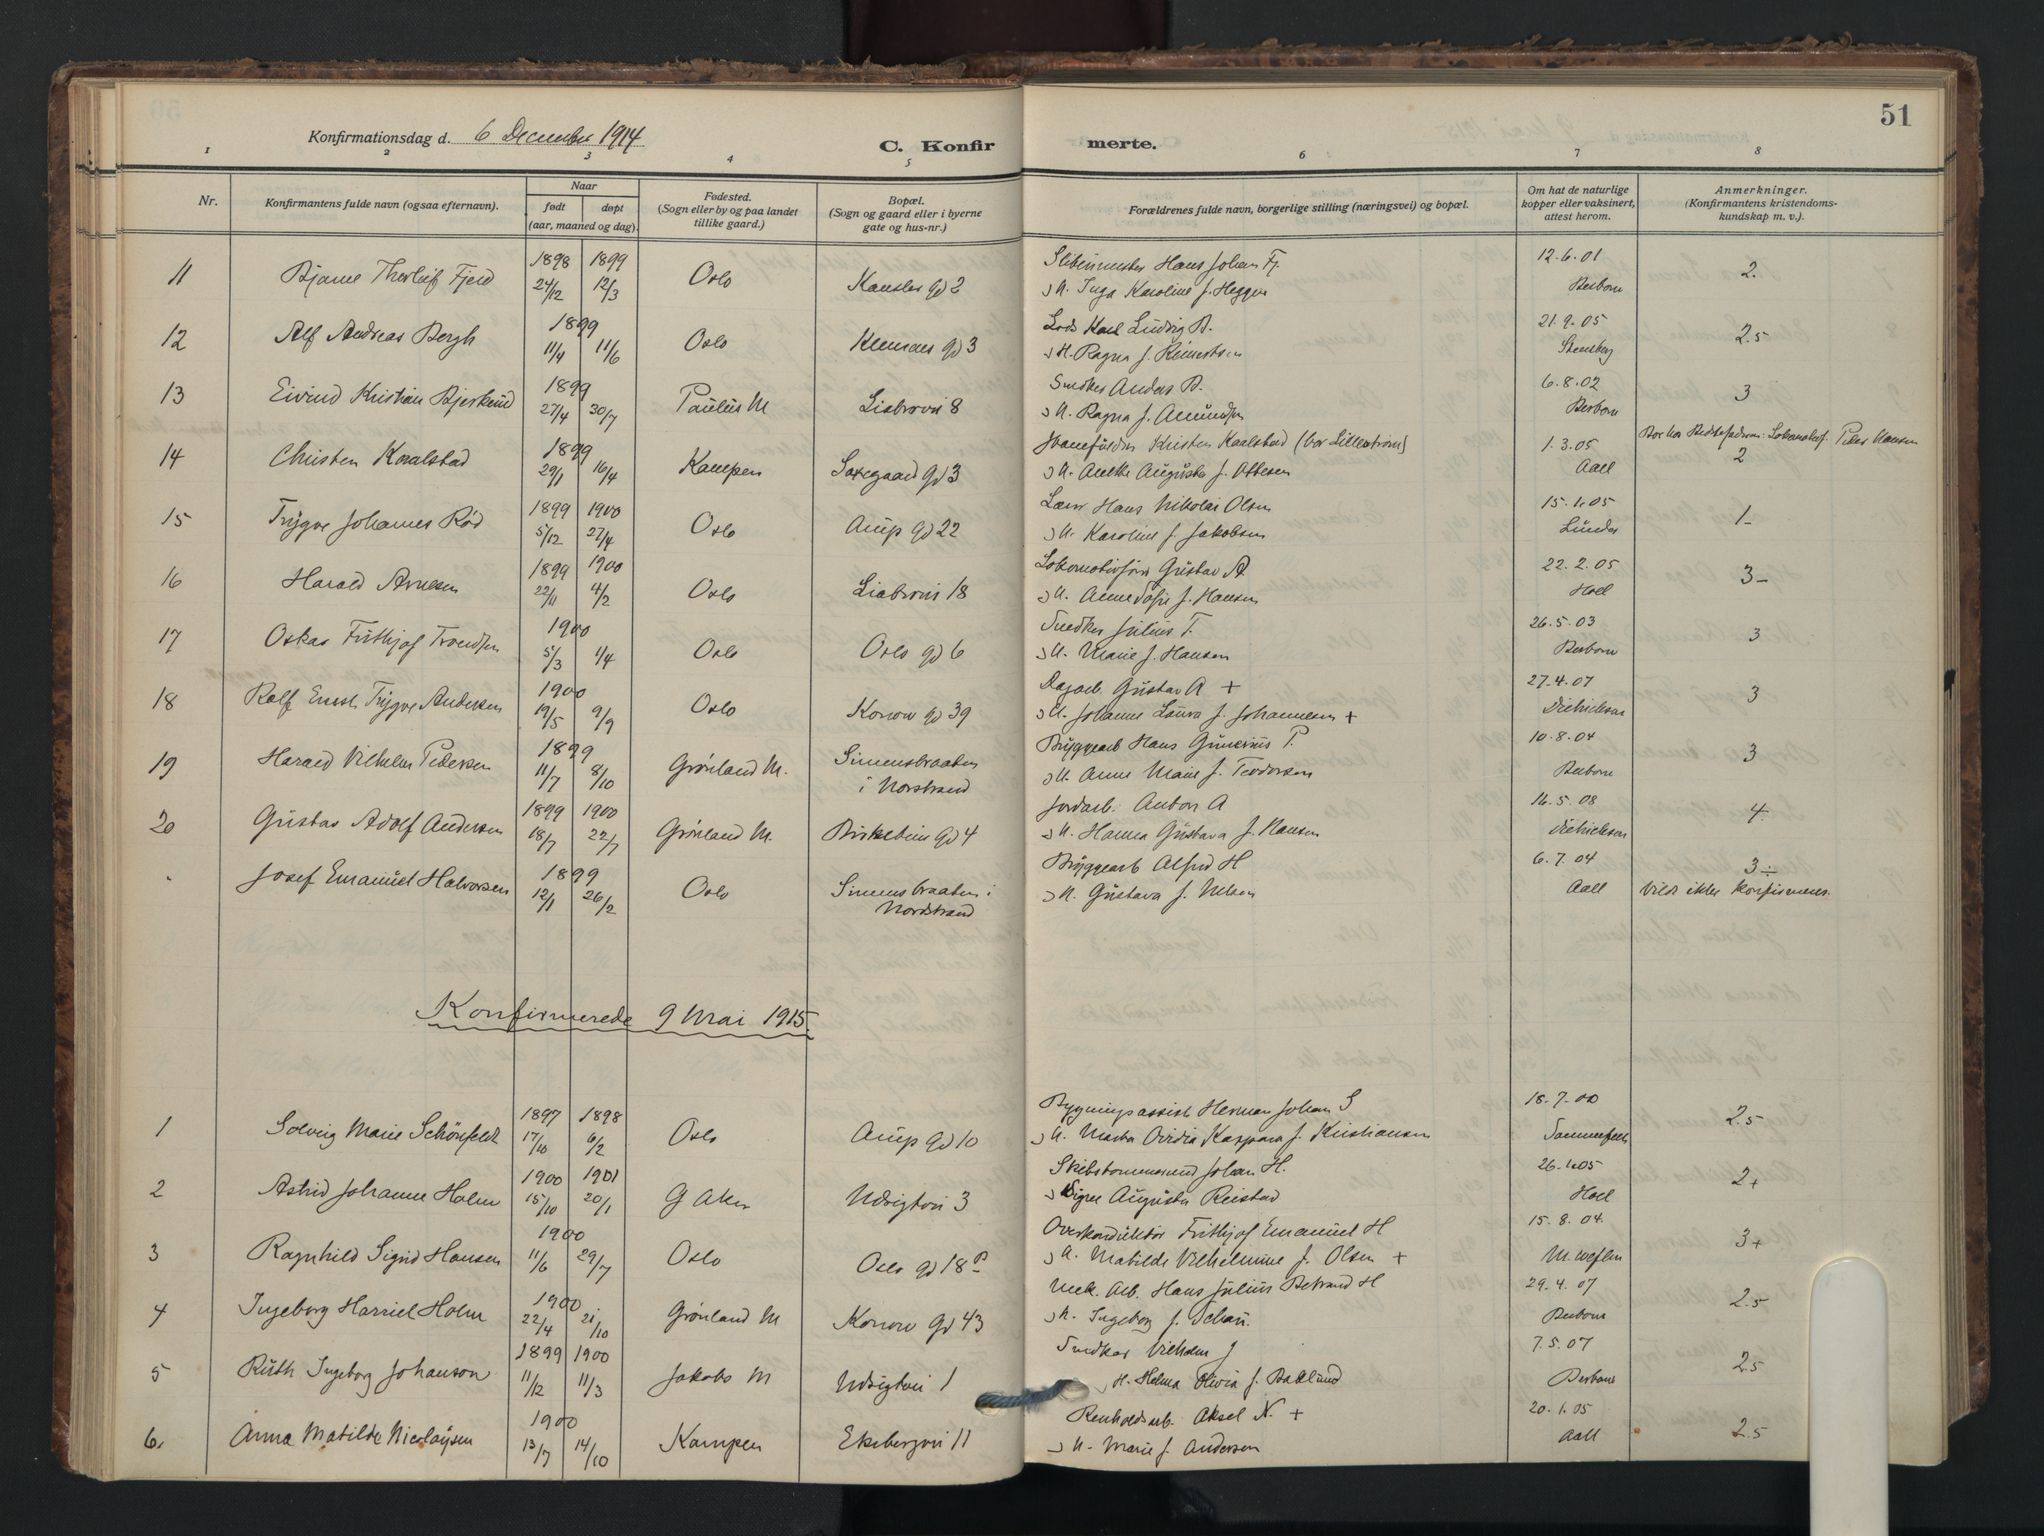 51
Konfirmationsdag d. 6 December 1914
C. Konfirmerte.
1 2 3 4 5 6 7 8
Nr.
Konfirmantens fulde navn (ogsaa efternavn).
Naar
født døpt
(aar, maaned og dag).
Fødested.
(Sogn eller by og paa landet
tillike gaard.)
Bopæl.
(Sogn og gaard eller i byerne
gate og hus-nr.)
Forældrenes fulde navn, borgerlige stilling (næringsvei) og bopæl.
Om hat de naturlige
kopper eller vaksinert,
attest herom.
Anmerkninger.
(Konfirmantens kristendoms-
kundskap m. v.).
11 Bjarne Thorleif Fjeld 1898 24/12 1899 12/3 Oslo Kansler gd 2 Hans Johan Fj. 12.6.01 2.
Inga Karoline f. Heggen
12 Alf Andreas Bergh 1899 11/4 11/6 Oslo Klemens gd 3 Lods Karl Ludvig B. 21.9.05 Stensberg 2.5
H. Ragna f. Reinertsen
13 Eivind Kristian Bjerkend 1899 27/4 30/7 Paulus M Liabrovn 8 Smed Anders B. 6.8.02 3
H. Ragna f. Amundsen
14 Christen Koralstad 1899 29/1 16/4 Kampen Saxegaard gd 3 Kristen Kaalstad (bor Lillestrøm) 1.3.05 Aall Bor hos Bedstefaderen: Lokomotivf. Peder Hansen 2
H. Anette Augusta f. Ottesen
15 Trygve Johannes Rød 1899 5/12 1900 27/4 Oslo Arup gd 22 Hans Nikolai Olsen 15.1.05 Lunder 1-
H. Karoline f. Jakobsen
16 Harald Arnesen 1899 22/11 1900 4/2 Oslo Liabrovn 18 Lokomotivfører Gustav A 22.2.05 Hoel 3-
H. Anne Sofie f. Hansen
17 Oskar Frithjof Trondsen 1900 5/3 1/4 Oslo Oslo gd 6 Snedker Julius T. 26.5.03 3
H. Marie f. Hansen
18 Rolf Ernst Trygve Andersen 1900 19/5 9/9 Oslo Konow gd 39 Dagarb. Gustav A + 27.4.07 Dietrichson 3
H. Johanne Laura f. Johannesen +
19 Harald Vilhelm Pedersen 1899 11/7 8/10 Grønland M. Simensbraaten i Norstrand Bryggearb Hans Gunerius P. 10.8.04 3
H. Anne Marie f. Teodorsen
20 Gustav Adolf Andersen 1899 18/7 1900 22/7 Grønland M. Birkebein gd 4 Jordarb. Anton A 16.5.08 Dietrichson 4
H. Hanna Gustava f. Hansen
Josef Emanuel Halvorsen 1899 12/1 26/2 Oslo Simensbraaten i Nordstrand Bryggearb Alfred H 6.7.04 Aall 3÷
H. Gustava f. Nelsen Vilde ikke konfirmeres.
Konfirmerede 9 Mai 1915.
1 Solveig Marie Schönfeldt 1897 17/10 1898 6/2 Oslo Arup gd 10 Bygningsassist Herman Johan S 18.7.00 Sommerfelt 2.5
H. Marta Ovidia Kaspara f. Kristiansen
2 Astrid Johanne Holm 1900 15/10 1901 20/1 G Aker Udsigtvn 3 Skibstømmermand Johan H. 26.1.05 Hoel 2+
Signe Augusta Reistad
3 Ragnhild Sigrid Hansen 1900 11/6 29/7 Oslo Oslo gd 18 P Overkonduktør Frithjof Emanuel H 15.8.04. 3+
H. Matilde Vilhelmine f. Olsen +
4 Ingeborg Harriet Holm 1900 22/4 21/10 Grønland M Konow gd 43 Mek. Arb. Hans Julius Betrand H 29.4.07 2.5
H. Ingeborg f. Schau.
5 Ruth Ingeborg Johanson 1899 11/12 1900 11/3 Jakobs M Udsigtvn 1 Snedker Vilhelm J 7.5.07 2.5
H. Helma Olivia f. Baklund
6. Anna Matilde Nicolaysen 1900 13/7 14/10 Kampen Ekebergvn 11 Renholdsarb. Aksel N. + 20.1.05 Aall 2.5
H. Marie f. Andersen